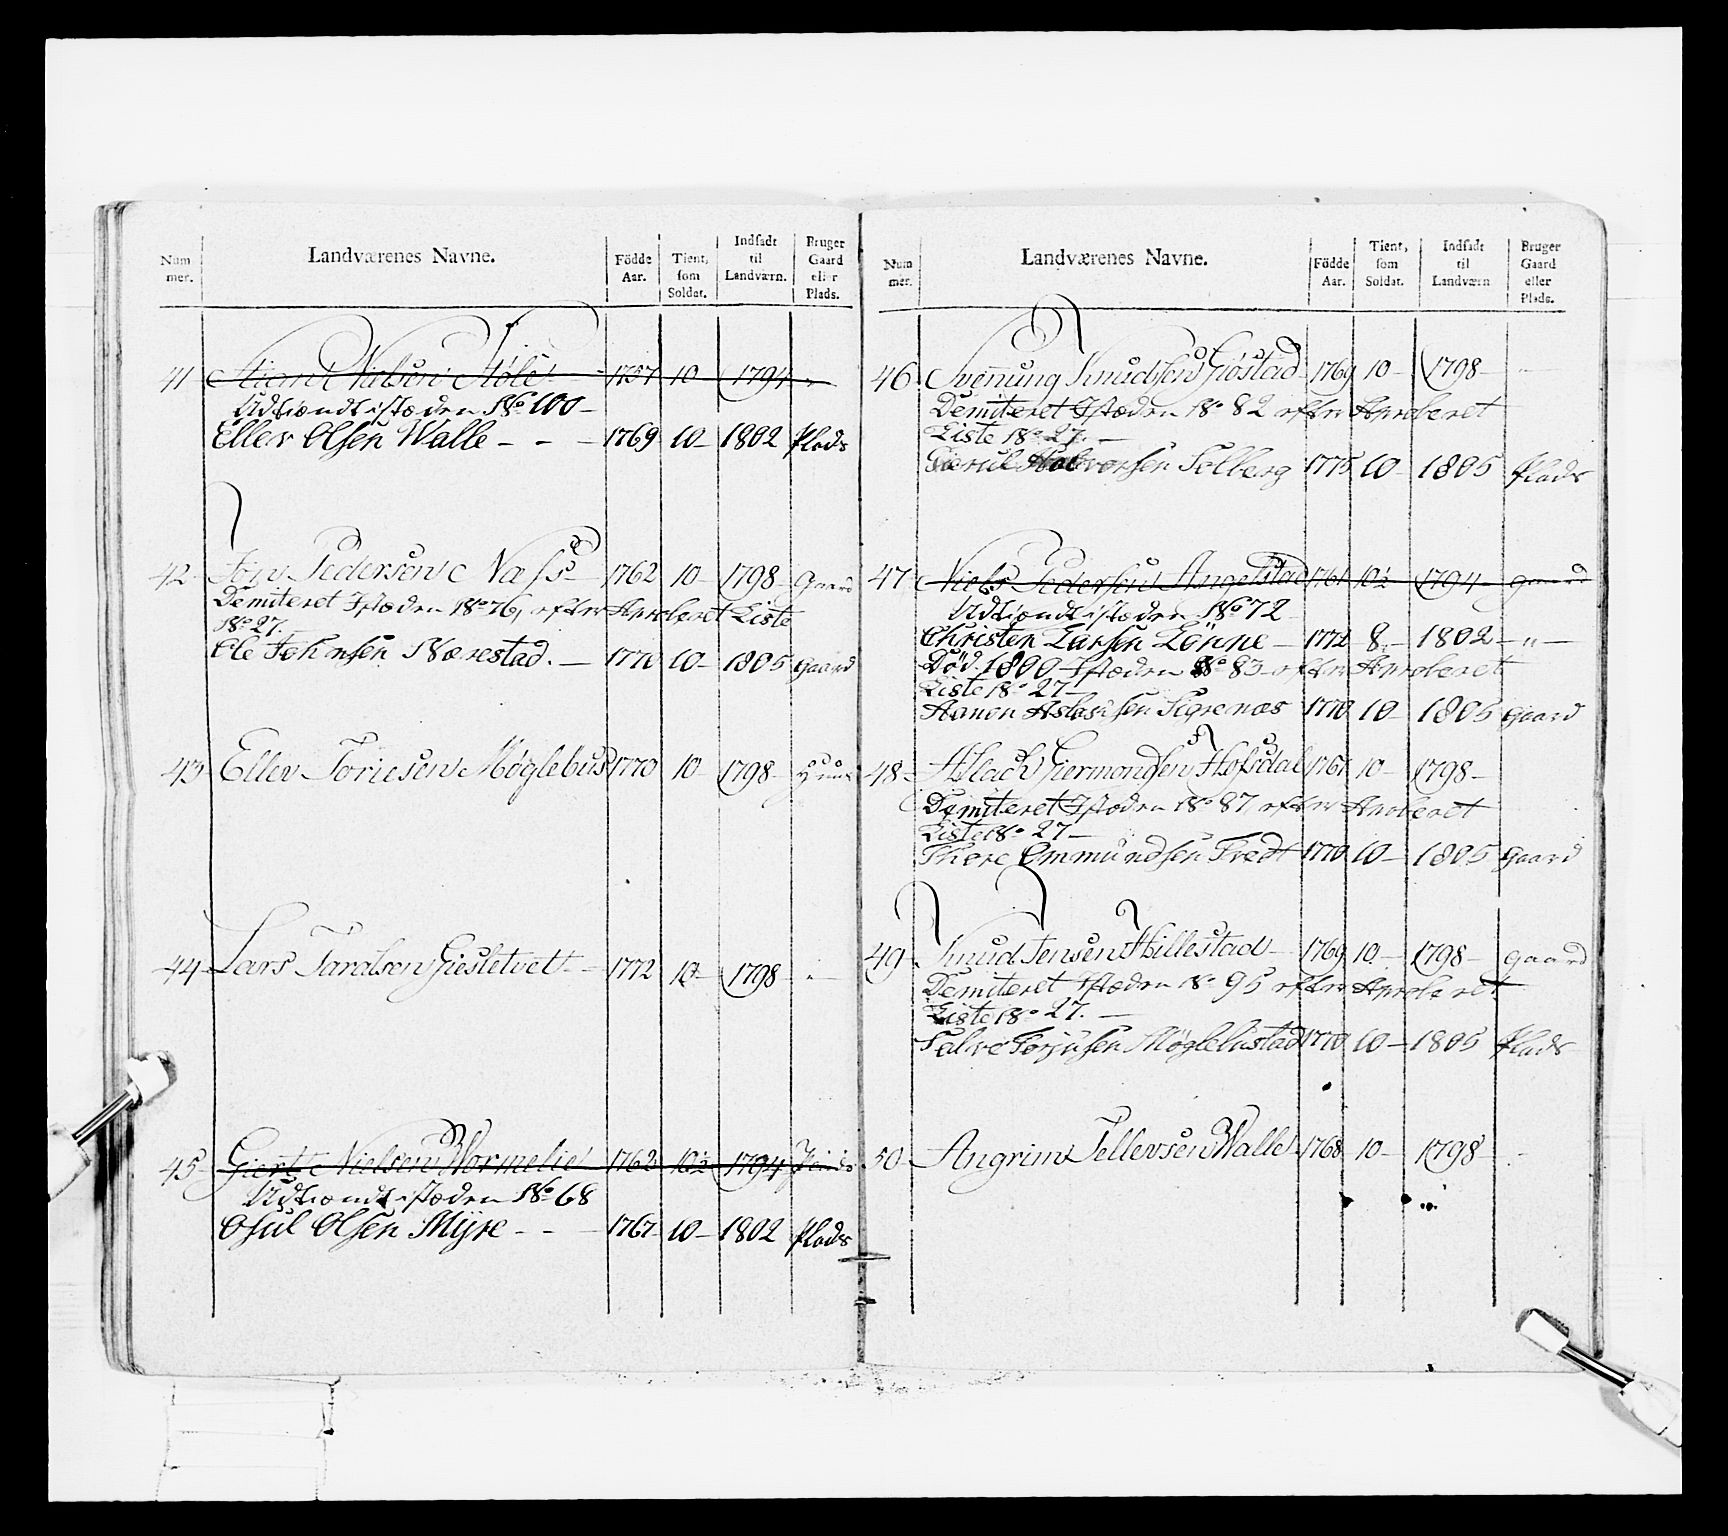 Num
mer.
Landværenes Navne.
Födde
Aar.
Tient,
som
Soldat.
Indsadt
til
Landværn.
Bruger
Gaard
eller
Plads.
41 Nielsen 1757 10 1794 "
Udtiændt istæden No 100 -
Ellev Olsen Walle - - - 1769 10 - 1802 Plads
42 Jon Pedersen Næss 1762 10 - 1798 Gaard
Demiteret Istæden No 76, efter Aproberet Liste
No 27.
Ole Johnsen Nærestad. - 1770 10 - 1805 Gaard
43 Ellev Torjesen Møglebust 1770 10 - 1798
44 Lars Taralsen Giesletvet - 1772 10 - 1798 -
45 Giert Nielsen Wormelie 1762 10½ 1794
Udtiændt istæden No 68
Osul Olsen Myre - - - 1767 10 - 1802 Plads
Num
mer.
Landværenes Navne.
Födde
Aar.
Tient,
som
Soldat.
Indsadt
til
Landværn
Bruger
Gaard
eller
Plads.
46 Svenung Knudsen Giøstad 1769 10 - 1798 -
Demiteret Istæden No 82 efter Aproberet
Liste No 27. -
Halvorsen Solberg 1775 10 - 1805 Plads
47 Niels Pedersen Angelstad 1761 10½ 1794 Gaard
Udtiændt istæden No 72
Christen Larsen Lønne - 1772 8 - 1802 - " -
Død. 1800 Istæden No 83 efter Aproberet
Liste No 27 -
Aanon Aslaksen 1770 10 - 1805 Gaard
48 Aslach Giermondsen Hofsdal 1767 10 - 1798 -
Demiteret Istæden No 87 efter Aproberet
Liste No 27 -
Thore Ommundsen Tredt 1770 10 - 1805 Gaard
49 Knud Jensen Hillestad - 1769 10 - 1798 - Gaard
Demiteret Istæden No 95 efter Aproberet
Liste No 27. -
Salve Torjusen Møglebustad 1770 10 - 1805 Plads
50 Angrim Tellevsen Walle 1768 10 - 1798 -